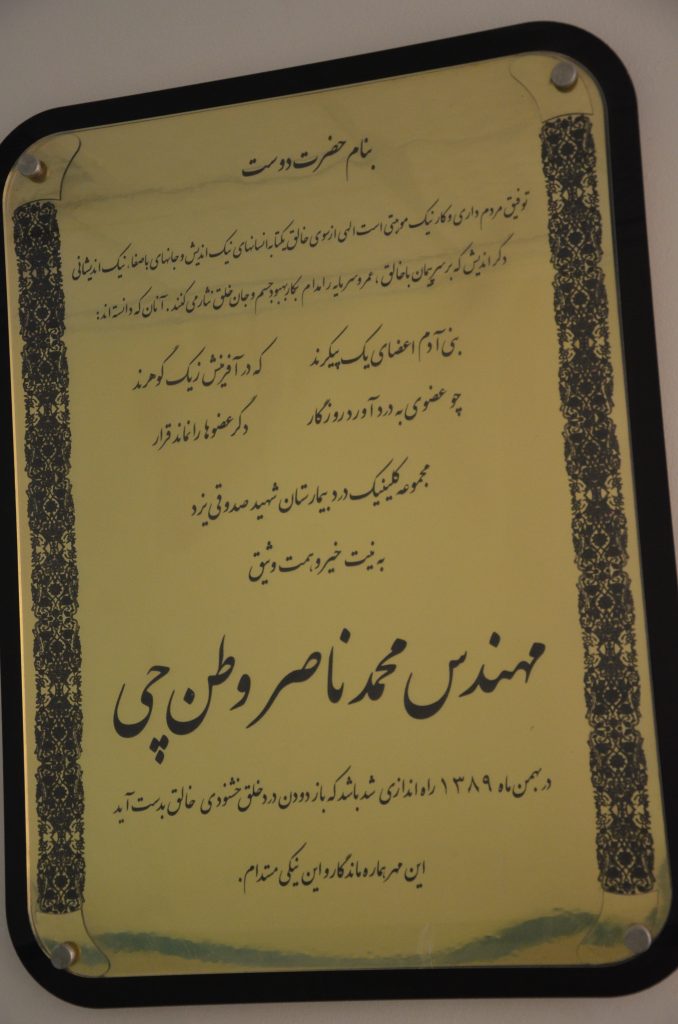 بنام حضرت دوست
توفیق مردم داری و کار نیک موهبتی است الهی از سوی خالق یکتا به انسانهای نیک اندیش و جانهای باصفا، نیک اندیشانی
دگر اندیش که بر سر پیمان با خالق، عمر و سرمایه را مدام بکار بهبود جسم و جان خلق نثار می کنند. آنان که دانسته اند:
بنی آدم اعضای یک پیکرند که در آفرینش ز یک گوهرند
چو عضوی به درد آورد روزگار دگر عضوها را نماند قرار
مجموعه کلینیک درد بیمارستان شهید صدوقی یزد
به نیت خیر و همت وثیق
مهندس محمد ناصر وطن چی
در بهمن ماه ۱۳۸۹ راه اندازی شد باشد که باز دودن درد خلق خشنودی خالق بدست آید
این مهر هماره ماندگار و این نیکی مستدام.